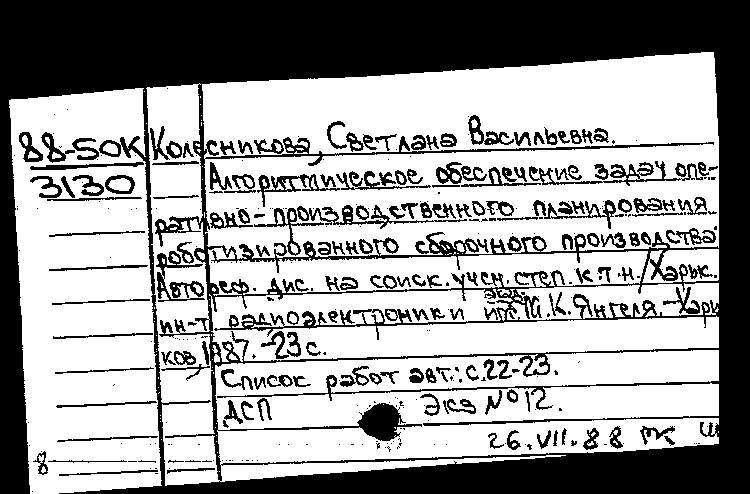 88-50К Колесникова, Светлана Васильевна.
3130 Алгоритмическое обеспечение задач опе-
ративно-производственного планирования
роботизированного сборочного производства:
Автореф. дис. на соиск. учен. степ. к.т.н. / Харьк.
ин-т радиоэлектроники им. М.К. Янгеля. - Харь
ков, 1987. - 23 с.
Список работ авт.: с. 22-23.
ДСП Экз № 12.
26.VII.88
8